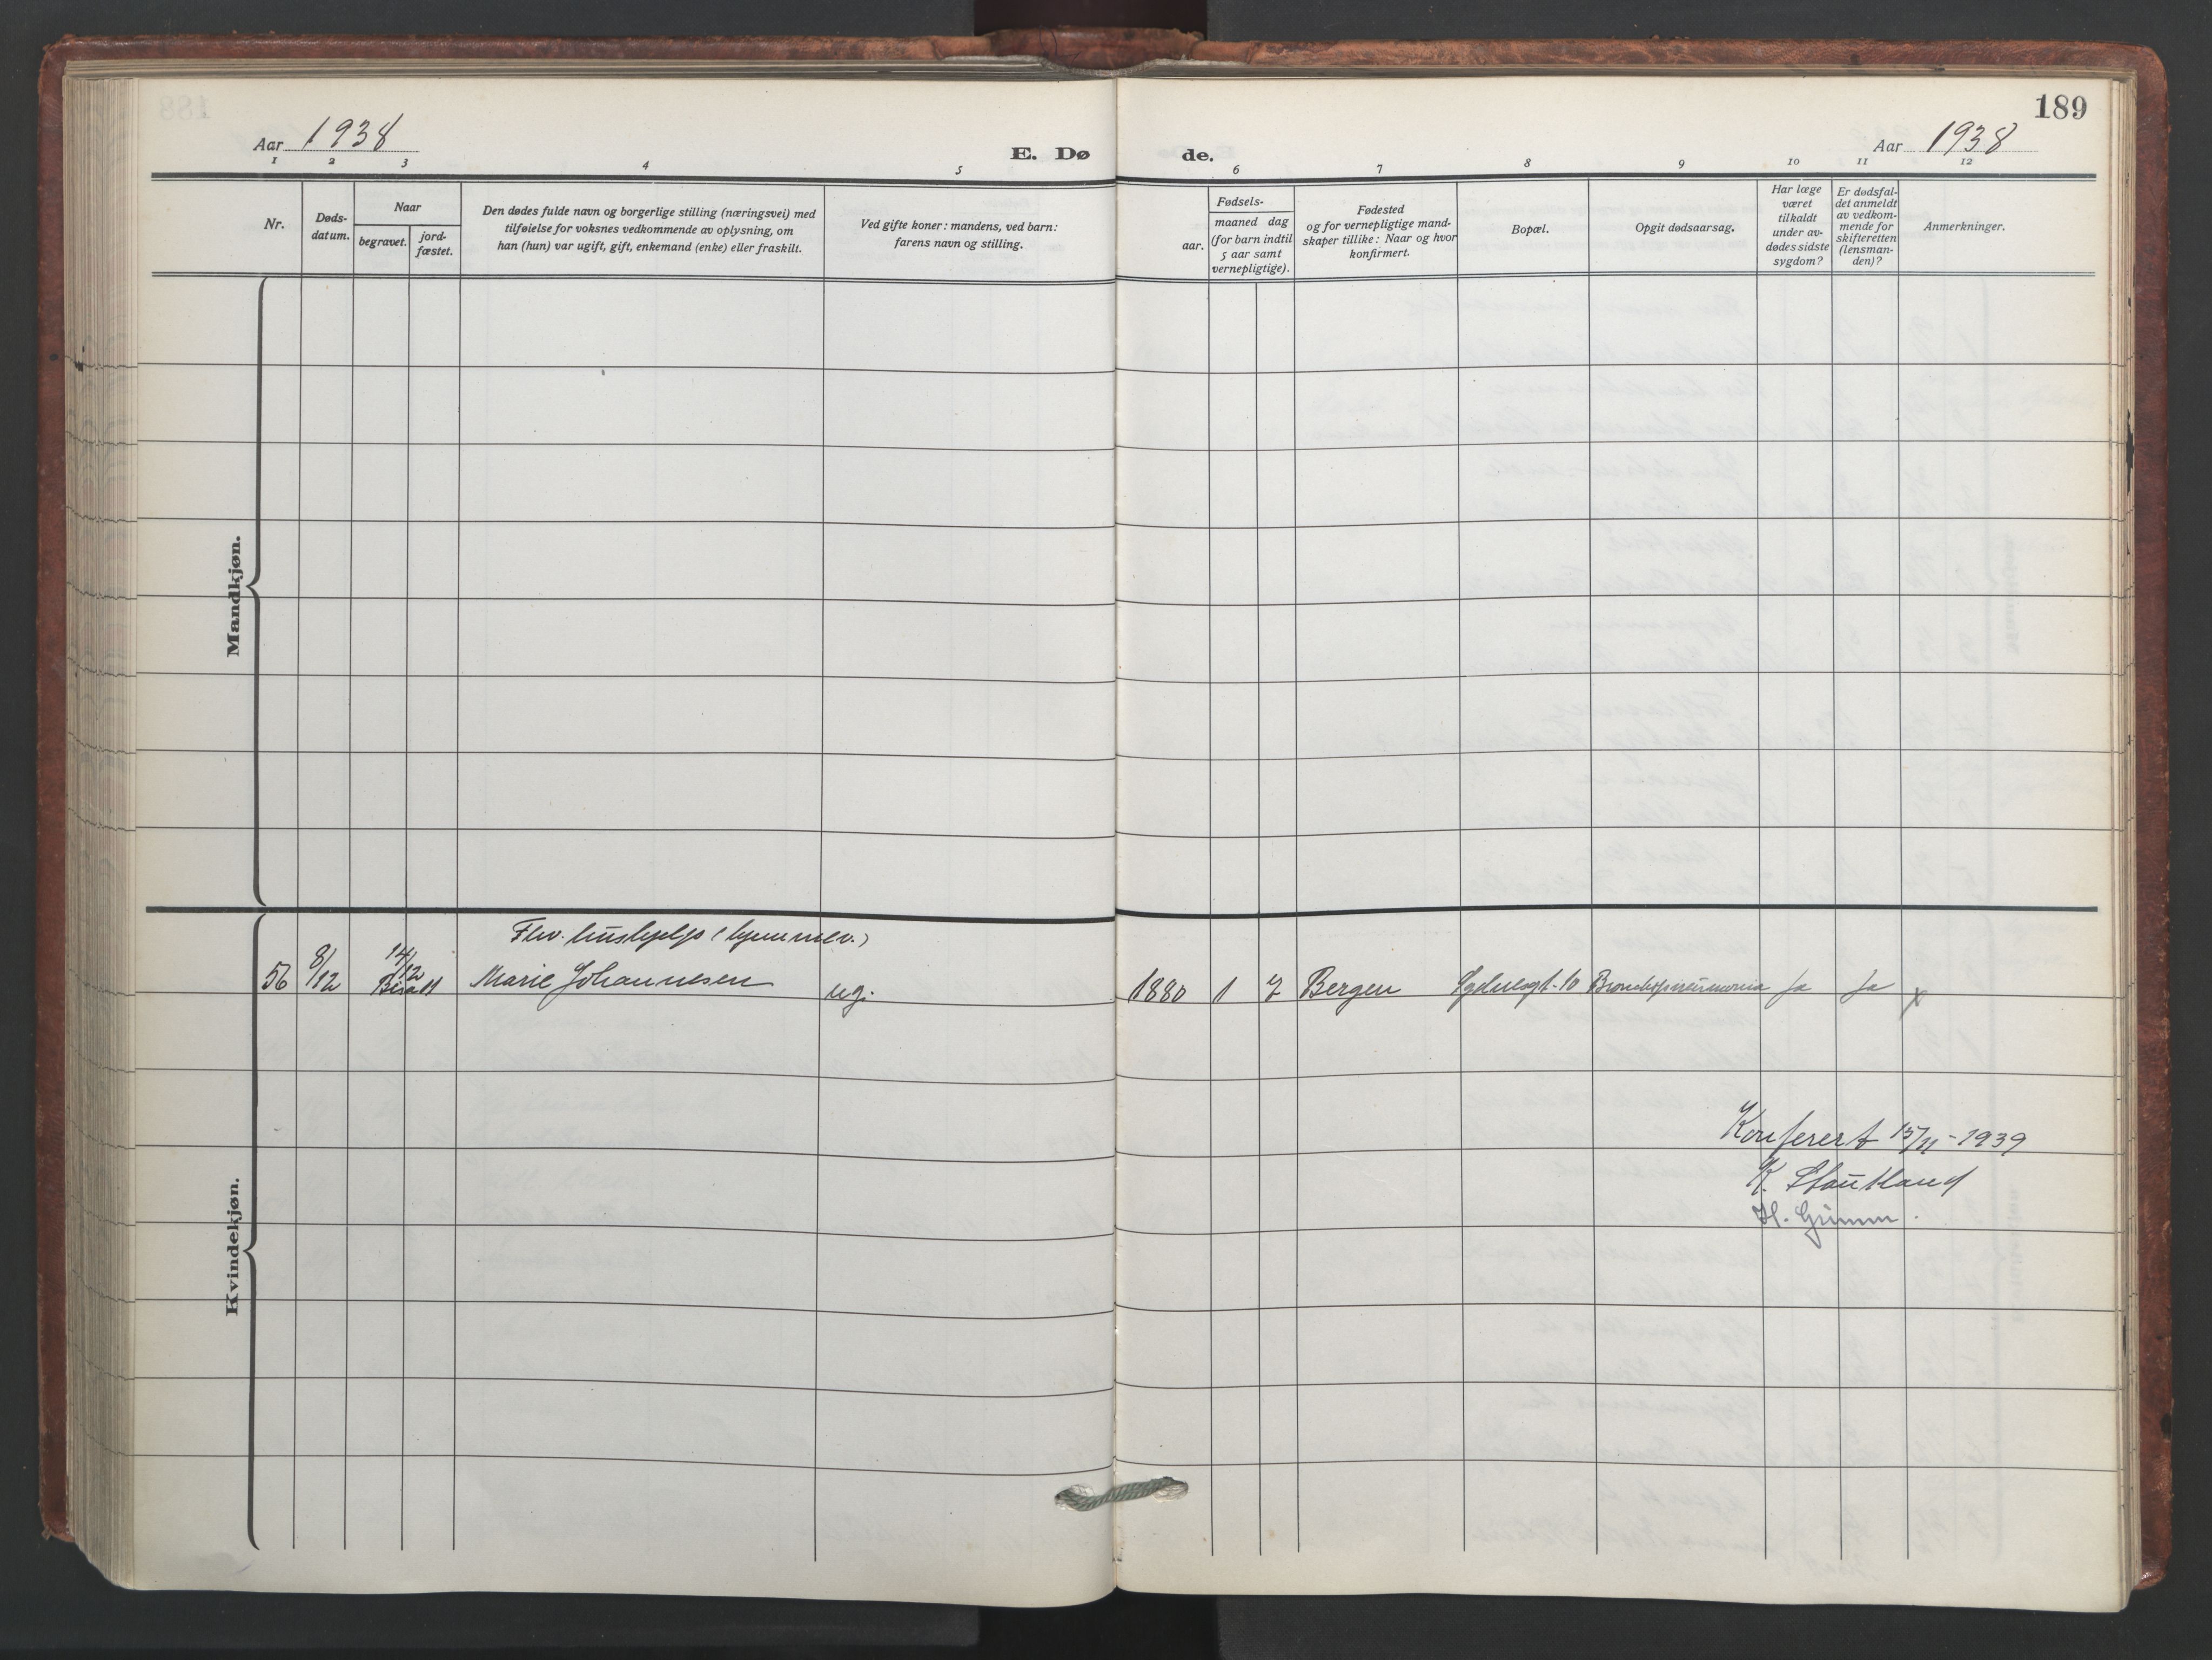 189
Aar 1938
E. Dø de.
Aar 1938
1 2 3 4 5 6 7 8 9 10 11 12
Nr.
Døds-
datum.
Naar
begravet.
jord-
fæstet.
Den dødes fulde navn og borgerlige stilling (næringsvei) med
tilføielse for voksnes vedkommende av oplysning, om
han (hun) var ugift, gift, enkemand (enke) eller fraskilt.
Ved gifte koner: mandens, ved barn:
farens navn og stilling.
Fødsels-
aar.
maaned dag
(for barn indtil
5 aar samt
vernepligtige).
Fødested
og for vernepligtige mand-
skaper tillike: Naar og hvor
konfirmert.
Bopæl.
Opgit dødsaarsag.
Har læge
været
tilkaldt
under av-
dødes sidste
sygdom?
Er dødsfal-
det anmeldt
av vedkom-
mende for
skifteretten
(lensman-
den)?
Anmerkninger.
Mandkjøn.
Kvindekjøn.
Fhv. hushjelp (hjemmev.)
56 8/12 14/12 Marie Johannesen ug. 1880 1 7 Bergen 10 Bronchopneumonia Ja Ja x
Konferert 15/11-1939
K. Stautland
H. Grimm.